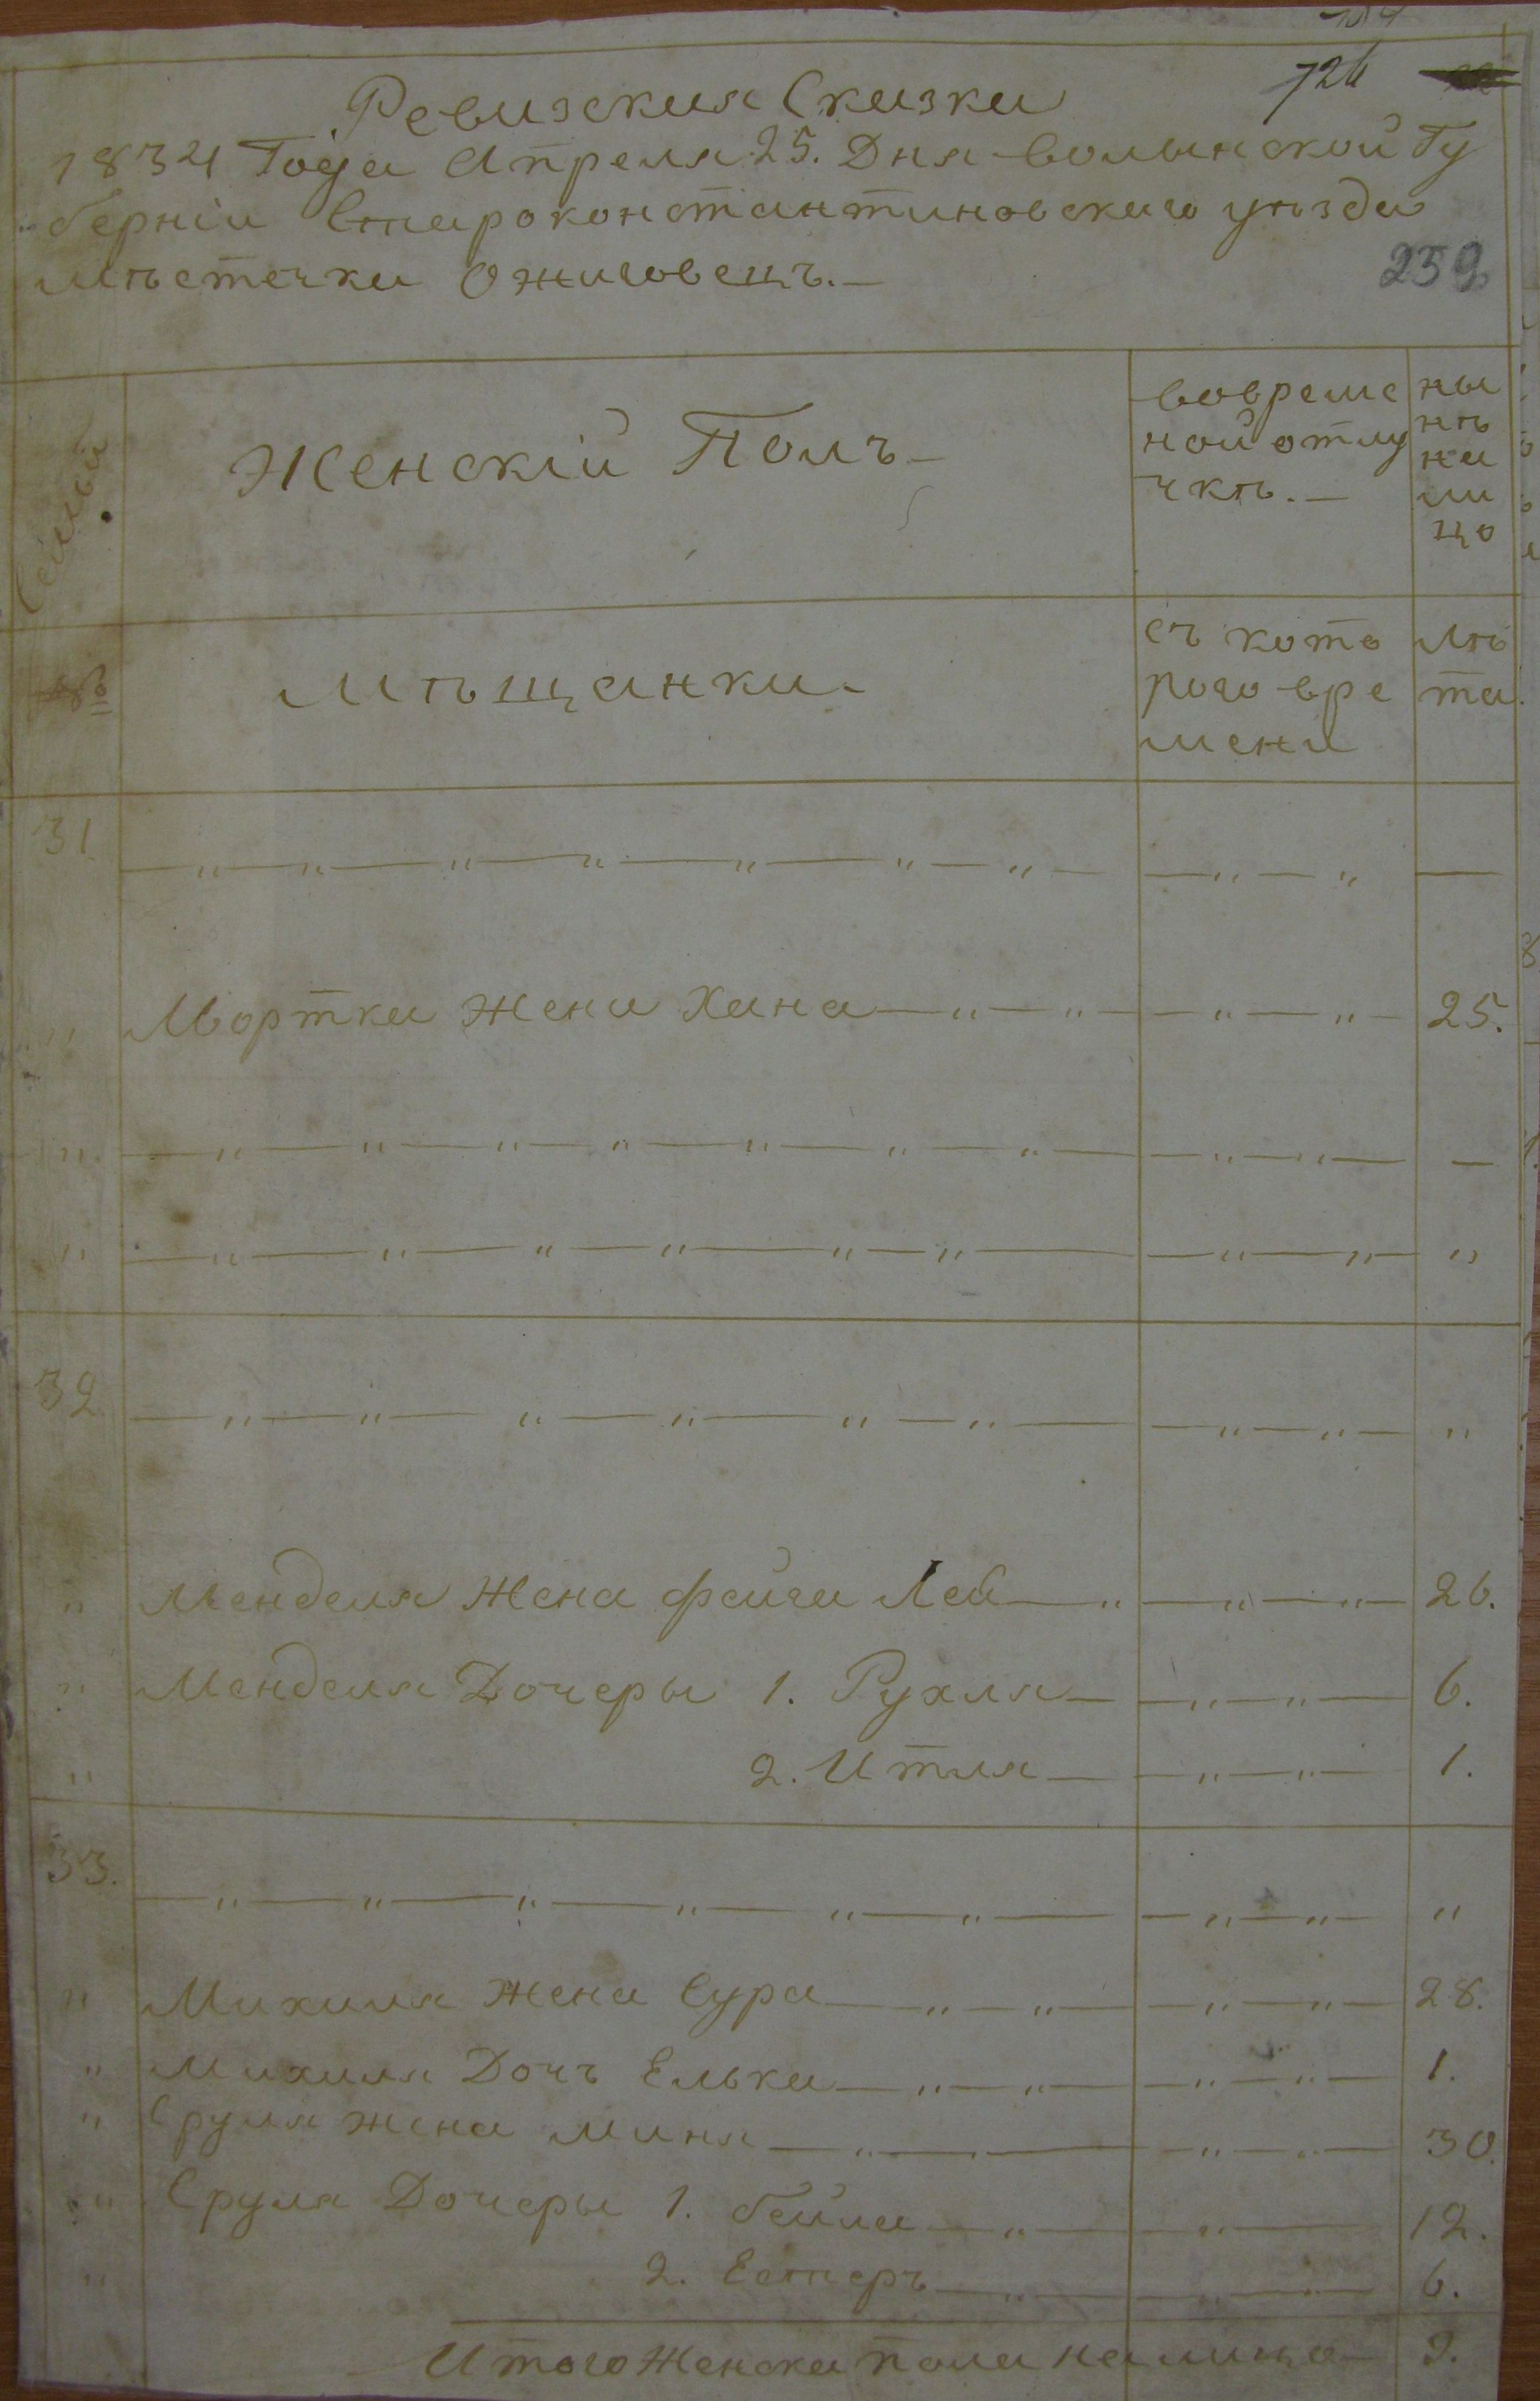 726
Ревизския Сказки
1834 Года Апреля 25. Дня Волынской Гу
берніи Староконстантиновскаго уѣзда
мѣстечка Ожиговецъ.—
259
Семьи
Женскій Полъ
вовреме
ной отлу
чкѣ.—
ны
нѣ
на
ли
цо
№
Мѣщанки.
съ кото
раго вре
мени
Лѣ
та.
31
Мортка Жена Хана 25.
32
Менделя Жена Фейга Лея 26.
Менделя Дочеры 1. Рухля 6.
2. Итля 1.
33.
Михиля Жена Сура 28.
Михиля Дочъ Елька 1.
Сруля Жена Миня 30.
Сруля Дочеры 1. Бейла 12.
2. Естеръ 6.
Итого Женска пола налицо 9.